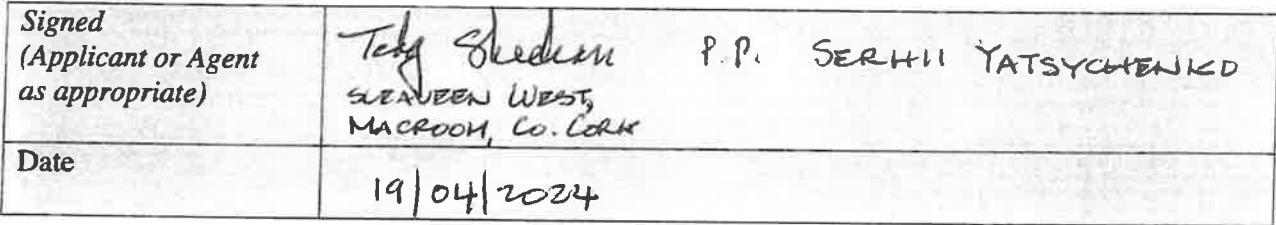 Signed
(Applicant or Agent
as appropriate)
P.P. SERHII YATSYCHENKO
SLEAVEEN WEST,
MACROOM, Co. CORK
Date
19/04/2024